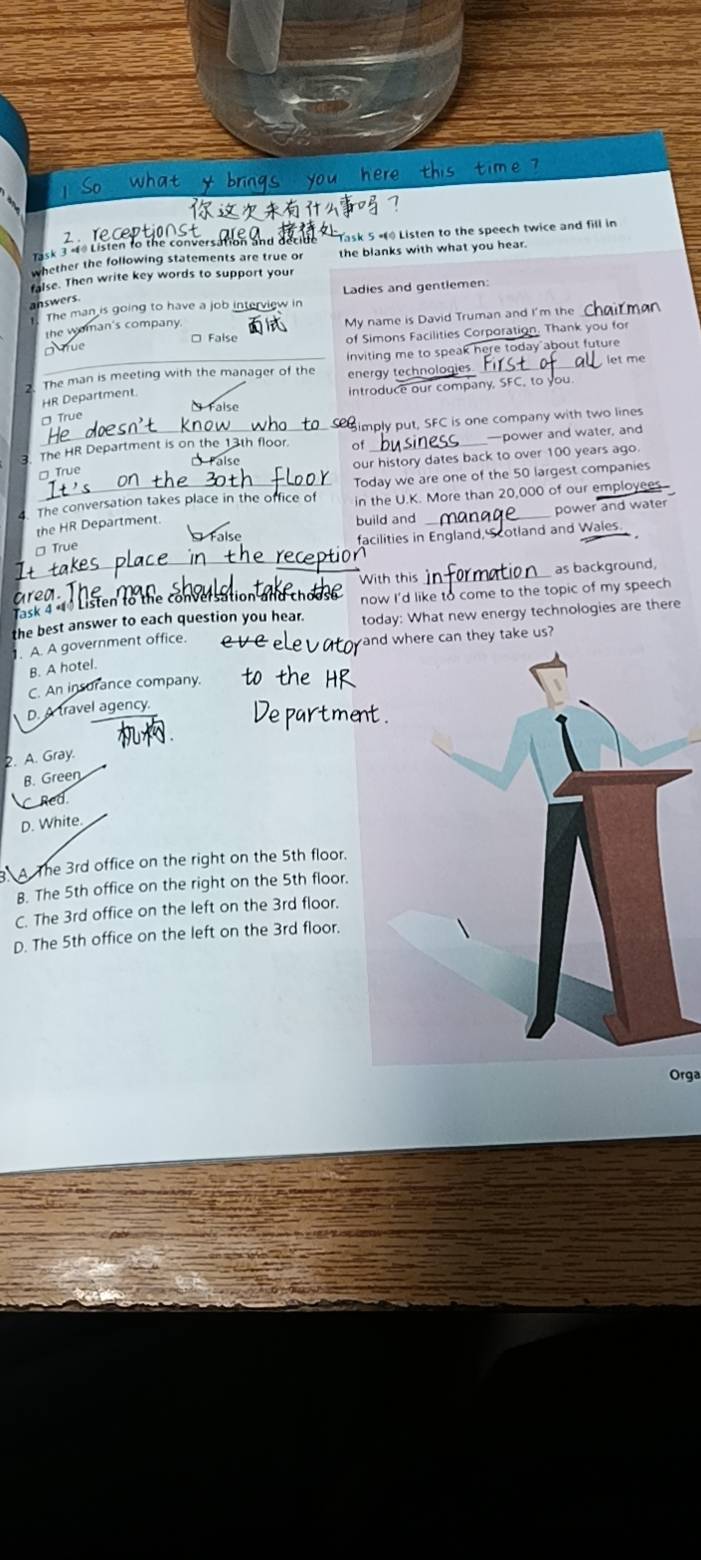 1 So what brings you here this time?
你这次来有什么事吗?
2. receptionst area 接待处
Task 3 Listen to the conversation and decide
whether the following statements are true or
false. Then write key words to support your
answers.
1. The man is going to have a job interview in
the woman's company.
面试
True
False
2. The man is meeting with the manager of the
HR Department.
True
False
He doesn't know who to see
3. The HR Department is on the 13th floor.
True
False
It's on the 30th floor
4. The conversation takes place in the office of
the HR Department.
True
False
It takes place in the reception
area. The man should take the
eve elevator
to the HR
Department.
Task 4 Listen to the conversation and choose
the best answer to each question you hear.
1. A. A government office.
B. A hotel.
C. An insurance company.
D. A travel agency.
机构.
2. A. Gray.
B. Green
C. Red.
D. White.
3. A. The 3rd office on the right on the 5th floor.
B. The 5th office on the right on the 5th floor.
C. The 3rd office on the left on the 3rd floor.
D. The 5th office on the left on the 3rd floor.
Task 5 Listen to the speech twice and fill in
the blanks with what you hear.
Ladies and gentlemen:
My name is David Truman and I'm the chairman
of Simons Facilities Corporation. Thank you for
inviting me to speak here today about future
energy technologies. First of all let me
introduce our company, SFC, to you.
Simply put, SFC is one company with two lines
of business —power and water, and
our history dates back to over 100 years ago.
Today we are one of the 50 largest companies
in the U.K. More than 20,000 of our employees
build and manage power and water
facilities in England, Scotland and Wales.
With this information as background,
now I'd like to come to the topic of my speech
today: What new energy technologies are there
and where can they take us?
Orga